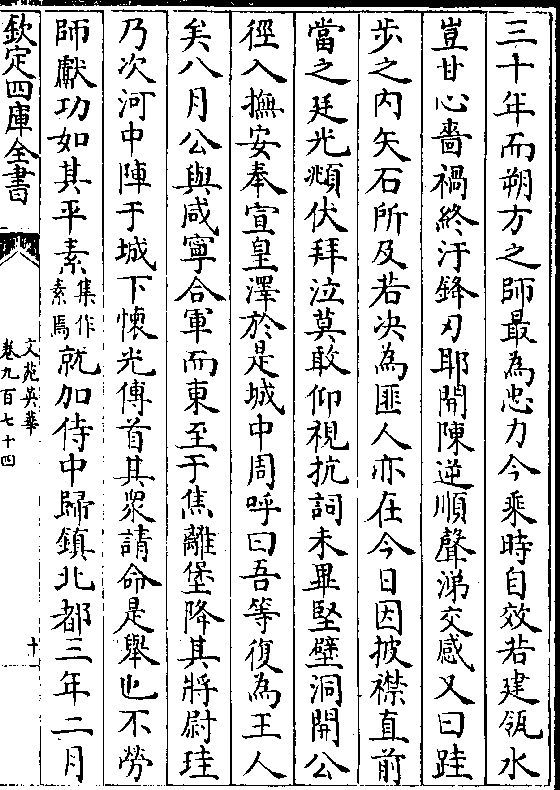 三十年而朔方之師最為忠力今乘時自效若建瓴水
豈甘心嗇禍終汙鋒刃耶開陳逆順聲涕交感又曰跬
步之内矢石所及若决為匪人亦在今日因披襟直前
當之廷光頫伏拜泣莫敢仰視抗詞未畢堅壁洞開公
徑入撫安奉宣皇澤於是城中周呼曰吾等復為王人
矣八月公與咸寧合軍而東至于焦離堡降其將尉珪
乃次河中陣于城下懐光傳首其衆請命是舉也不勞
師獻功如其平素集作素焉就加侍中歸鎮北都三年二月
欽定四庫全書
文苑英華
卷九百七十四
十